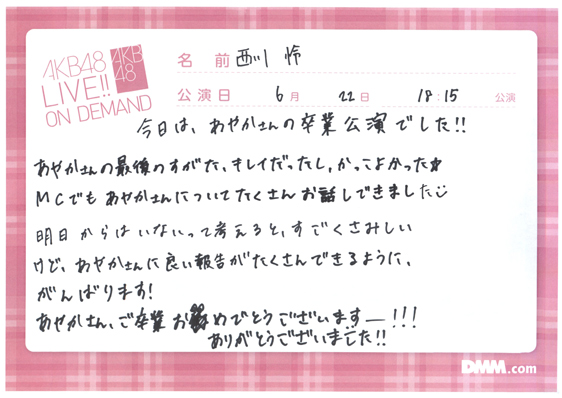 AKB48
LIVE!!
ON DEMAND
AKB
48
名前 西川 怜
公演日 6月 22日 18:15 公演
今日は、あやかさんの卒業公演でした!!
あやかさんの最後のすがた、キレイだったし、かっこよかった
MCでもあやかさんについてたくさんお話しできました
明日からはいないって考えると、すごくさみしい
けど、あやかさんに良い報告がたくさんできるように、
がんばります!
あやかさん、ご卒業おめでとうございますー!!!
ありがとうございました!!
DMM.com